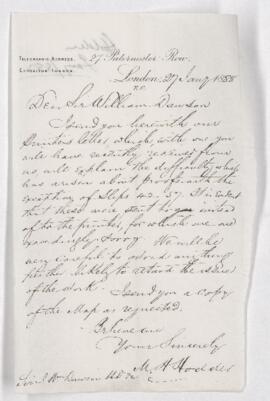 27 Paternoster Row,
TELEGRAPHIC ADDRESS,
London, 27 Jany 1888
Dear Sir William Dawson
I send you herewith our
letter, which, with one you
will have recently received from
us, will explain the difficulty which
has arisen about proofs with the
exception of Slips 42-57.
that these were sent to you instead
of to the printer, for which we are
exceedingly sorry. We will be
very careful to avoid anything
further likely to retard the issue
of the work. I send you a copy
of the Map as requested.
Believe me
Yours Sincerely
M. H. Hodder
Sir Wm Dawson